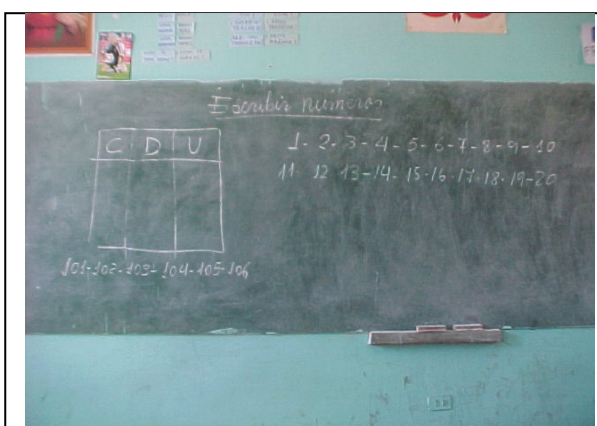 Escribir números
C D U
1- 2- 3- 4- 5- 6- 7- 8- 9- 10
11- 12 13- 14- 15- 16- 17- 18- 19- 20
101- 102- 103- 104- 105- 106